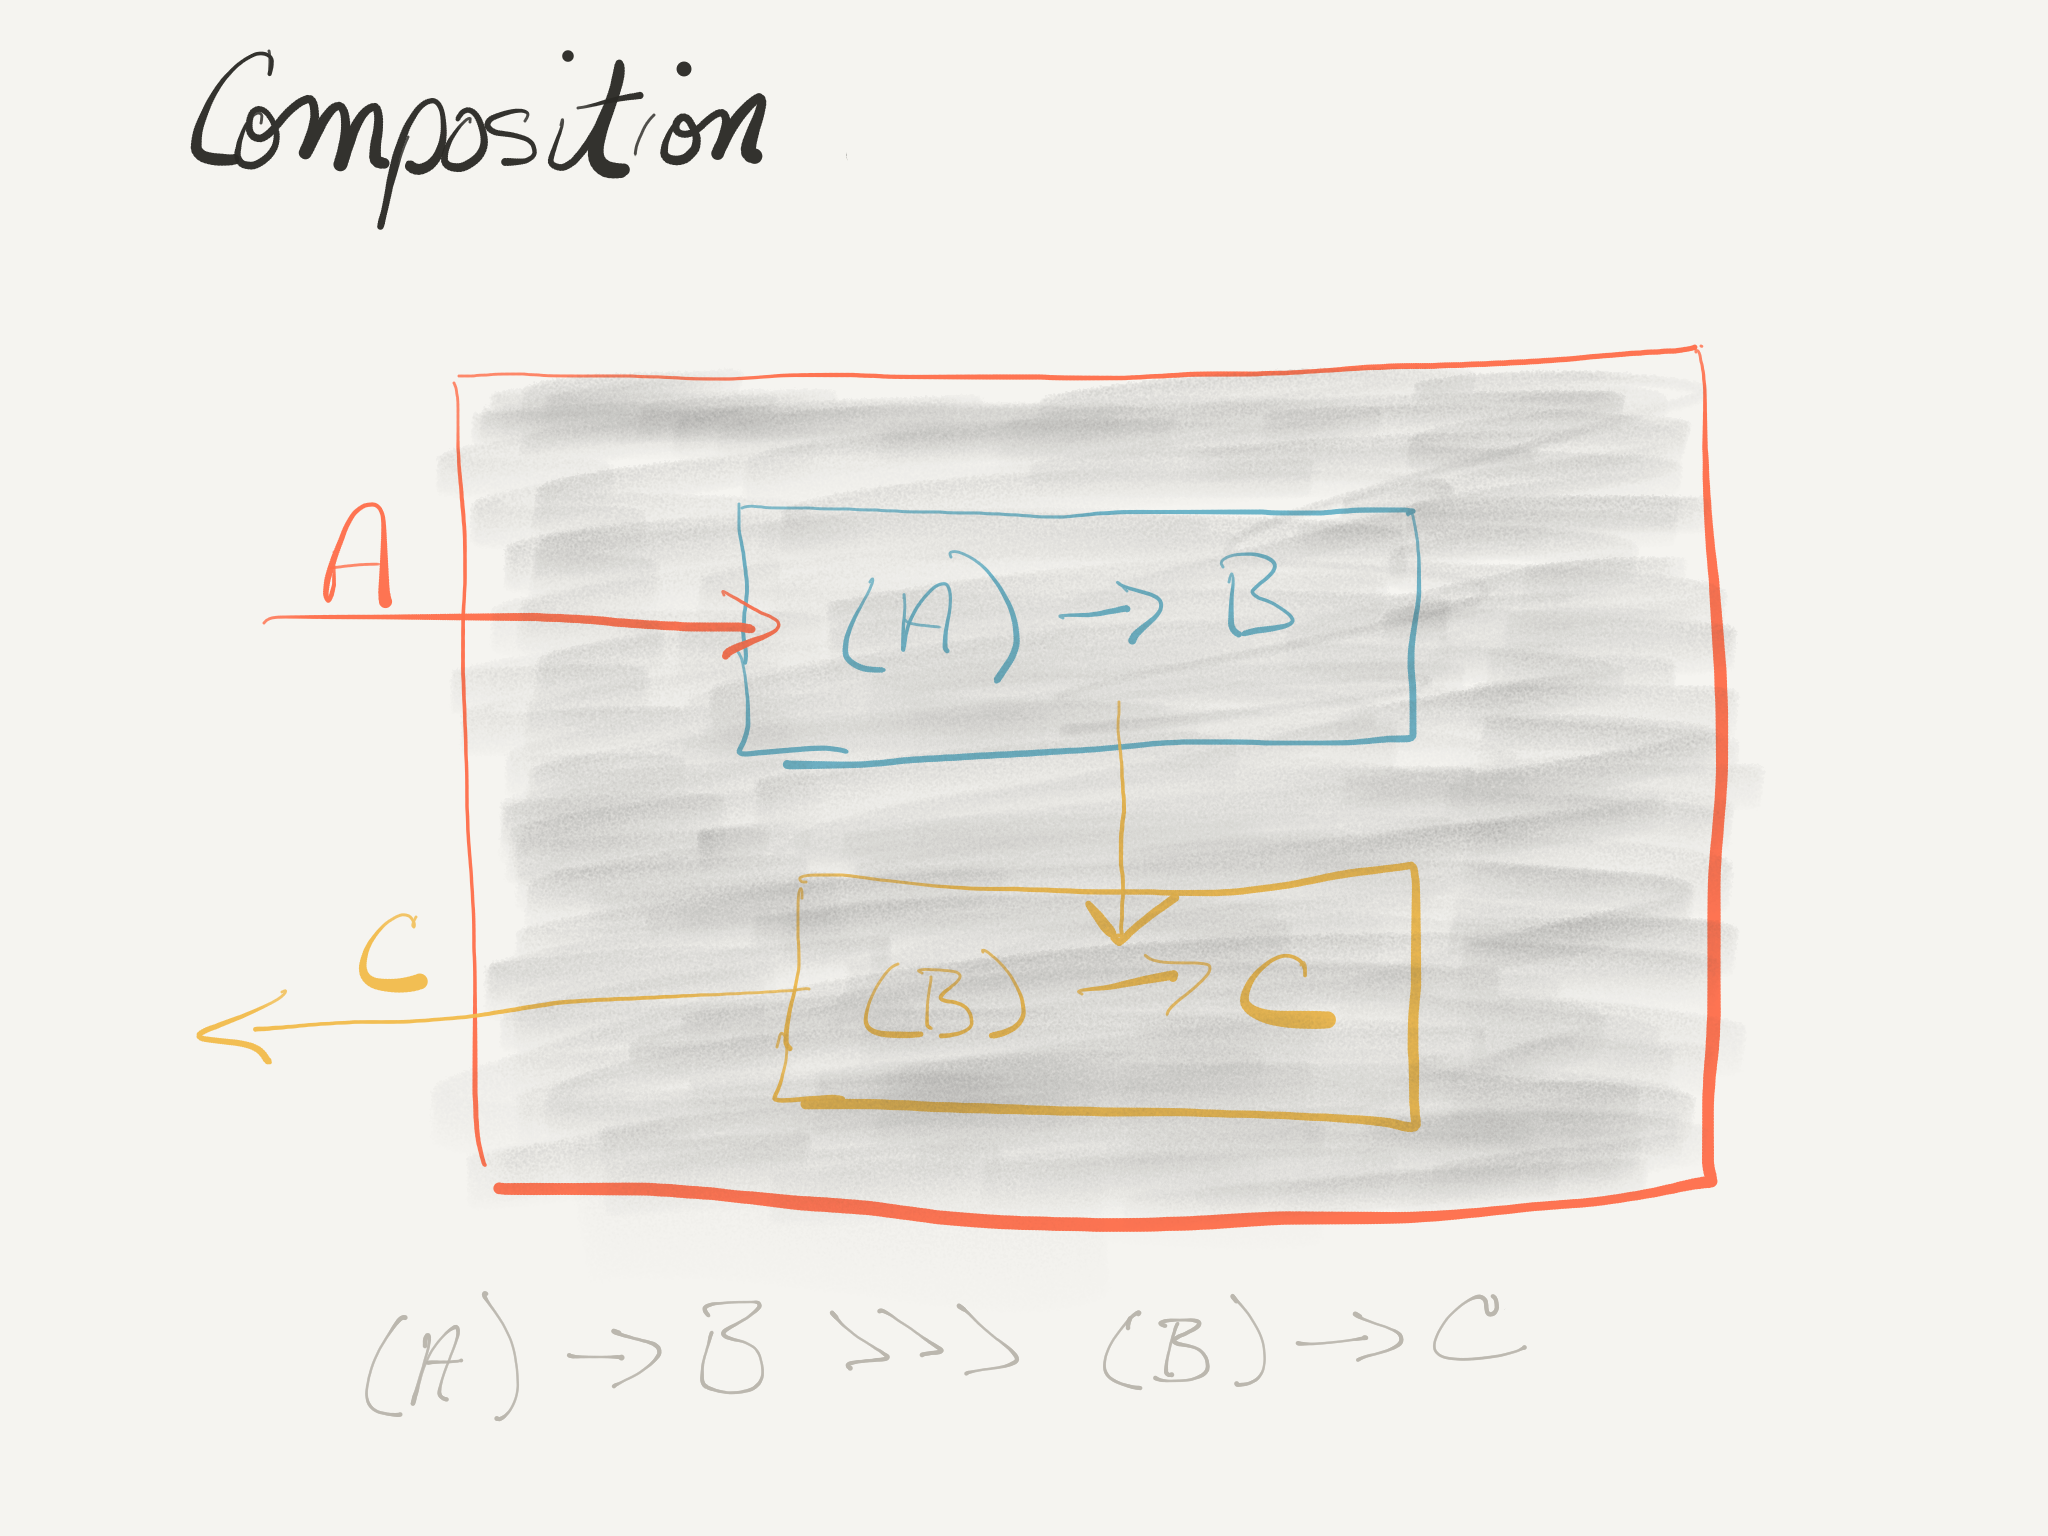 Composition
A
(A) → B
C
(B) → C
(A) → B >>> (B) → C